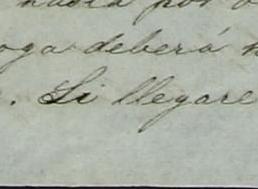 había por
oga deberá
. Si llegare